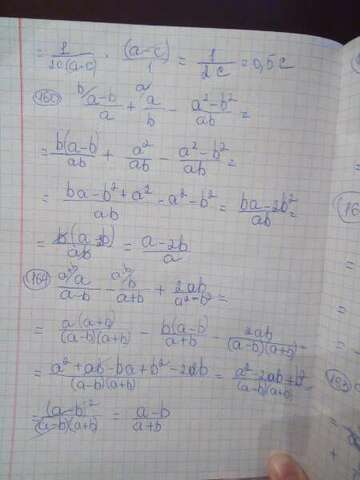 = 1/2c(a-c) · (a-c)/1 = 1/2c = 0,5c
160 b/ (a-b)/a + a/ a/b - (a²-b²)/ab =
= b(a-b)/ab + a²/ab - (a²-b²)/ab =
= (ba-b²+a²-a²-b²)/ab = (ba-2b²)/ab =
= b(a-2b)/ab = (a-2b)/a
164 a/(a-b) - b/(a+b) + 2ab/(a²-b²) =
= a(a+b)/(a-b)(a+b) - b(a-b)/(a+b) - 2ab/(a-b)(a+b) =
= (a²+ab-ba+b²-2ab)/(a-b)(a+b) = (a²-2ab+b²)/(a-b)(a+b) =
= (a-b)²/(a-b)(a+b) = (a-b)/(a+b)